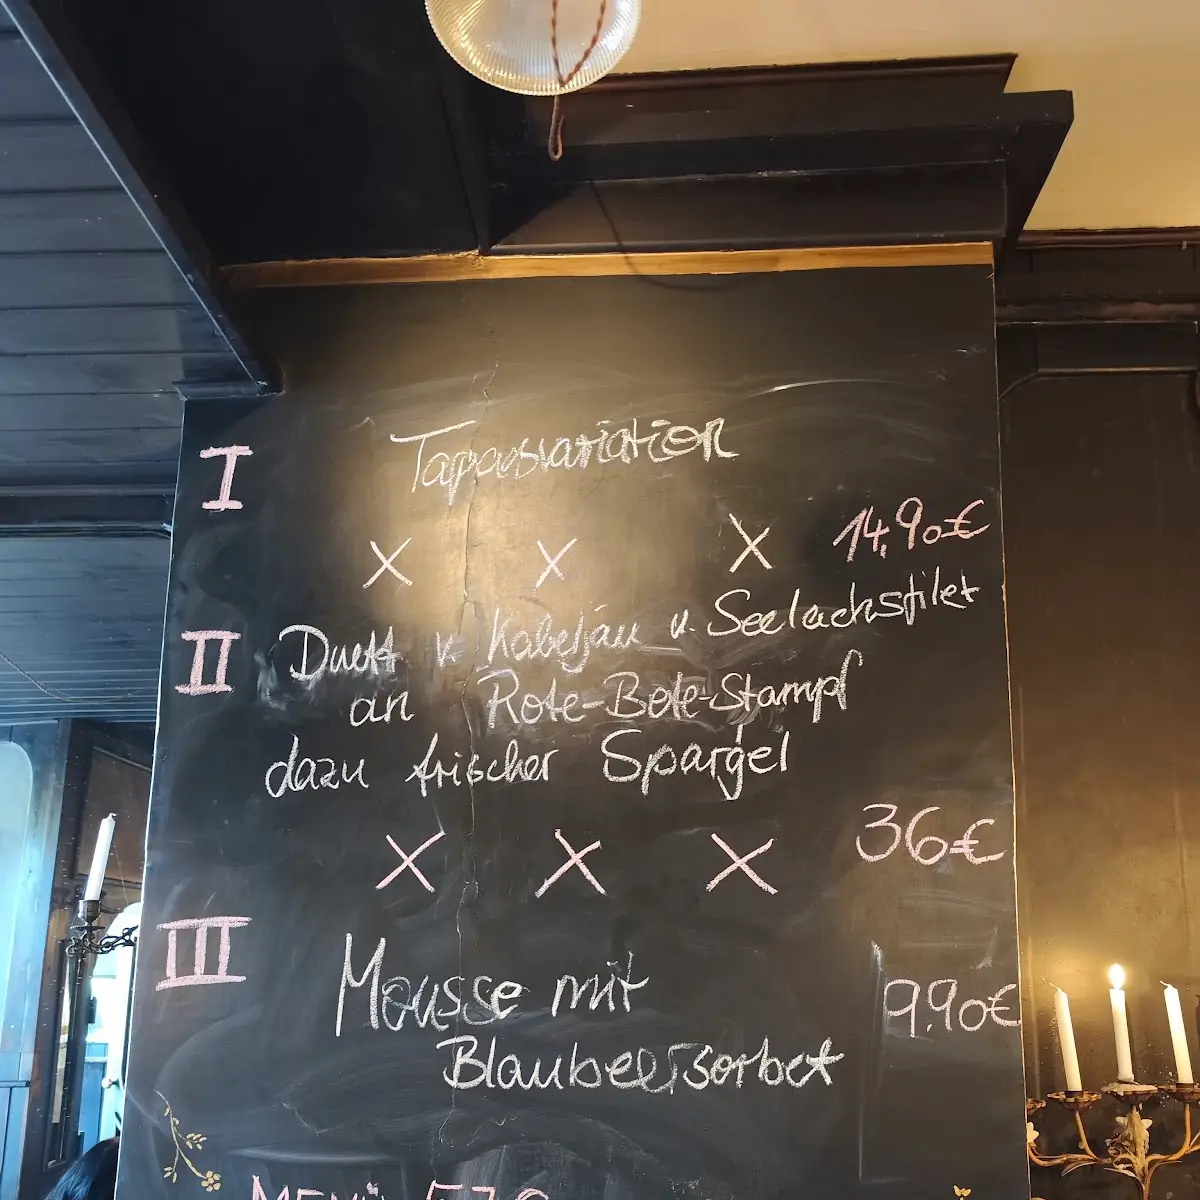 I Tapasvariation
X X X 14,90€
II Duett v. Kabeljau u. Seelachsfilet
an Rote-Bete-Stampf
dazu frischer Spargel
X X X 36€
III Mousse mit 9.90€
Blaubeersorbet
MENÜ